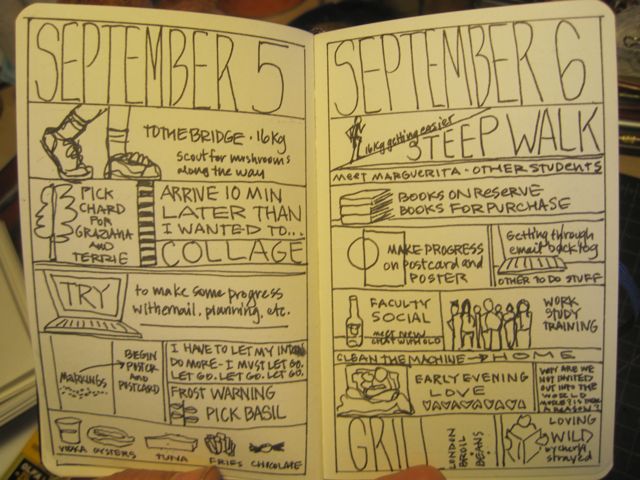 SEPTEMBER 5
TO THE BRIDGE · 16kg
scout for mushrooms
along the way
PICK
CHARD
FOR
GRAZIANA
AND
TERRIE
ARRIVE 10 MIN
LATER THAN
I WANTED TO...
COLLAGE
TRY
to make some progress
with email, planning, etc.
MARKINGS
BEGIN
POSTER
AND
POSTCARD
I HAVE TO LET MY INTERN
DO MORE - I MUST LET GO.
LET GO. LET GO. LET GO.
FROST WARNING
PICK BASIL
VODKA OYSTERS TUNA FRIES CHOCOLATE
SEPTEMBER 6
16kg getting easier
STEEP WALK
MEET MARGUERITA · OTHER STUDENTS
BOOKS ON RESERVE
BOOKS FOR PURCHASE
MAKE PROGRESS
on postcard and
POSTER
Getting through
email backlog
OTHER TO DO STUFF
FACULTY
SOCIAL
meet new
chat with old
WORK
STUDY
TRAINING
CLEAN THE MACHINE → HOME
EARLY EVENING
LOVE
WHY ARE WE
NOT INVITED
OUT INTO THE
WORLD
MORE? IS THERE
A REASON?
GRILL
LONDON
BROIL
BEANS
LOVING
WILD
by cheryl
strayed